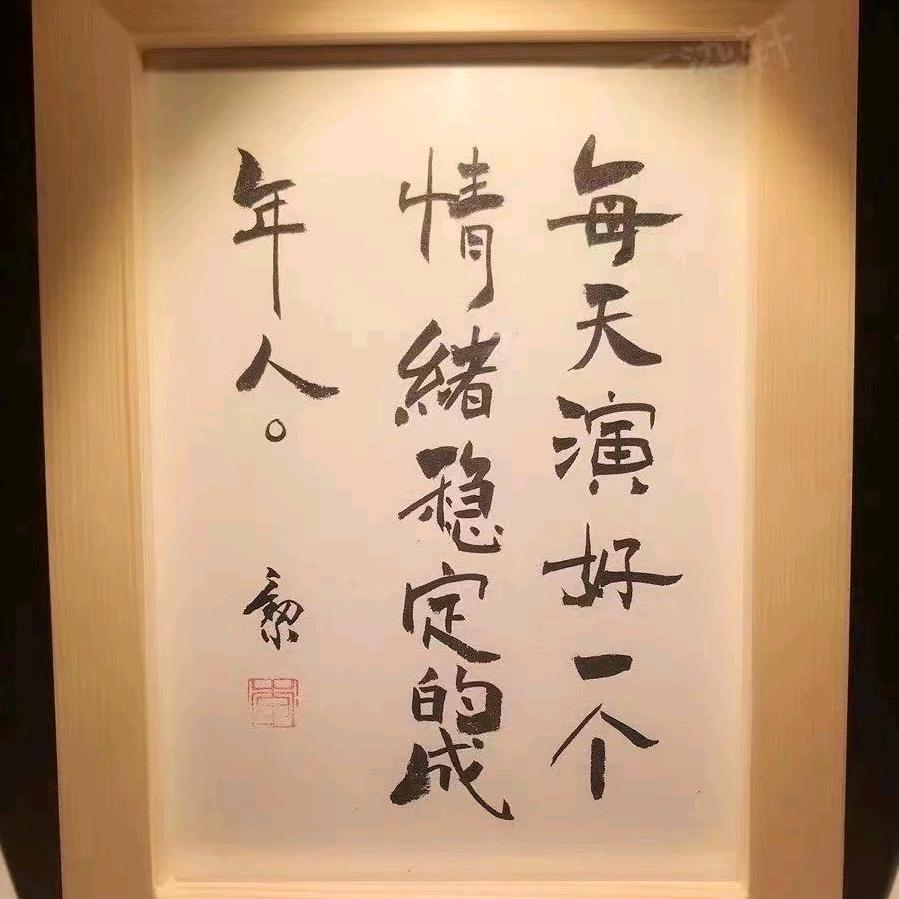 每天演好一个
情緒稳定的成
年人。